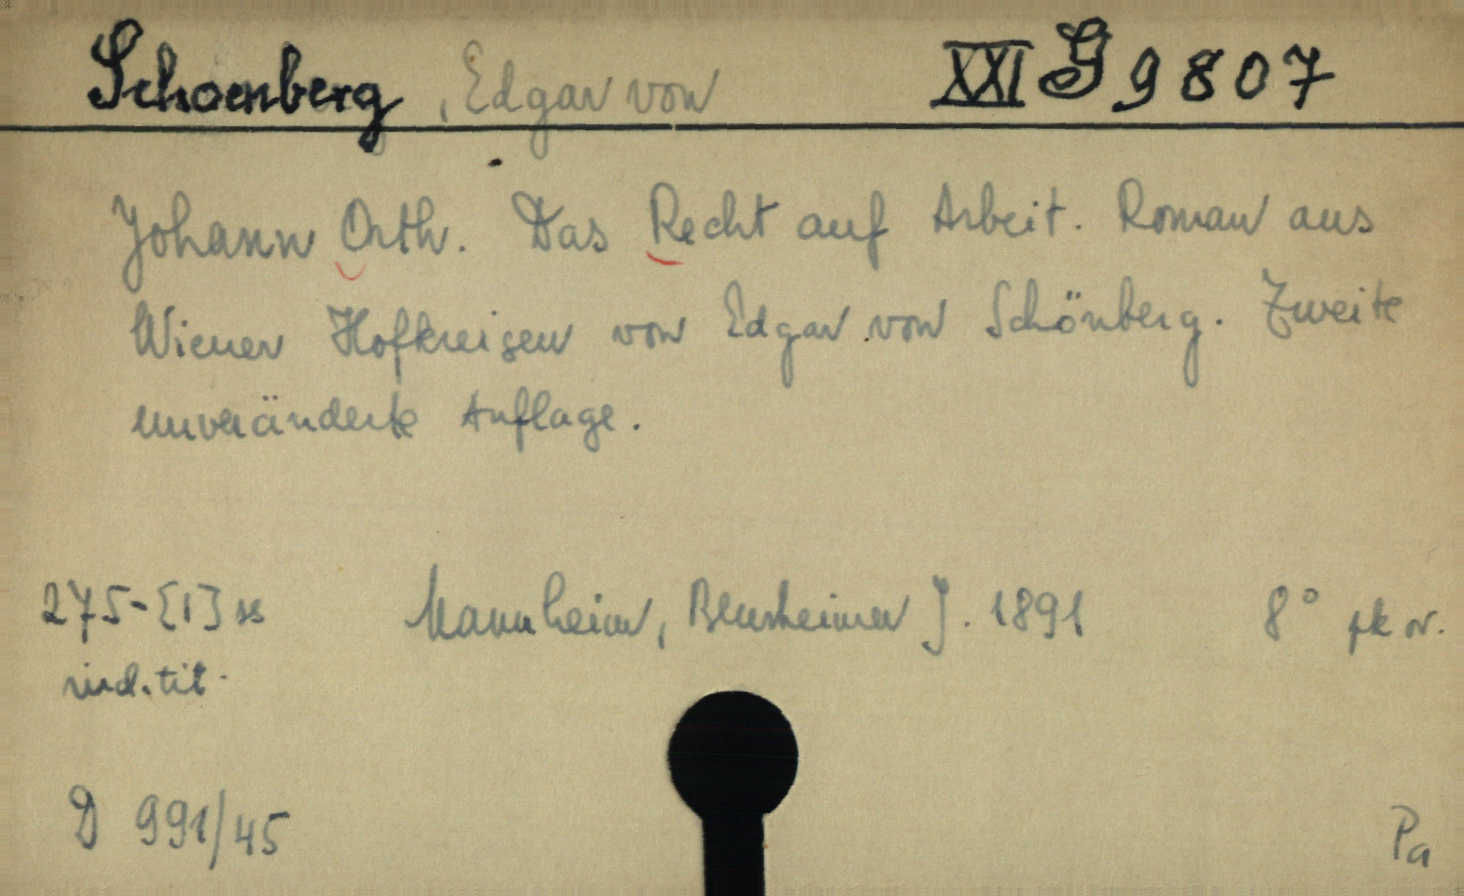 Schoenberg, Edgar von XXI G 9807
Johann Orth. Das Recht auf Arbeit. Roman aus
Wiener Hofkreisen von Edgar von Schönberg. Zweite
unveränderte Auflage.
275-[1] ss Mannheim, Bensheimer J. 1891 8°
ind. tit.
D 991/45
Pa